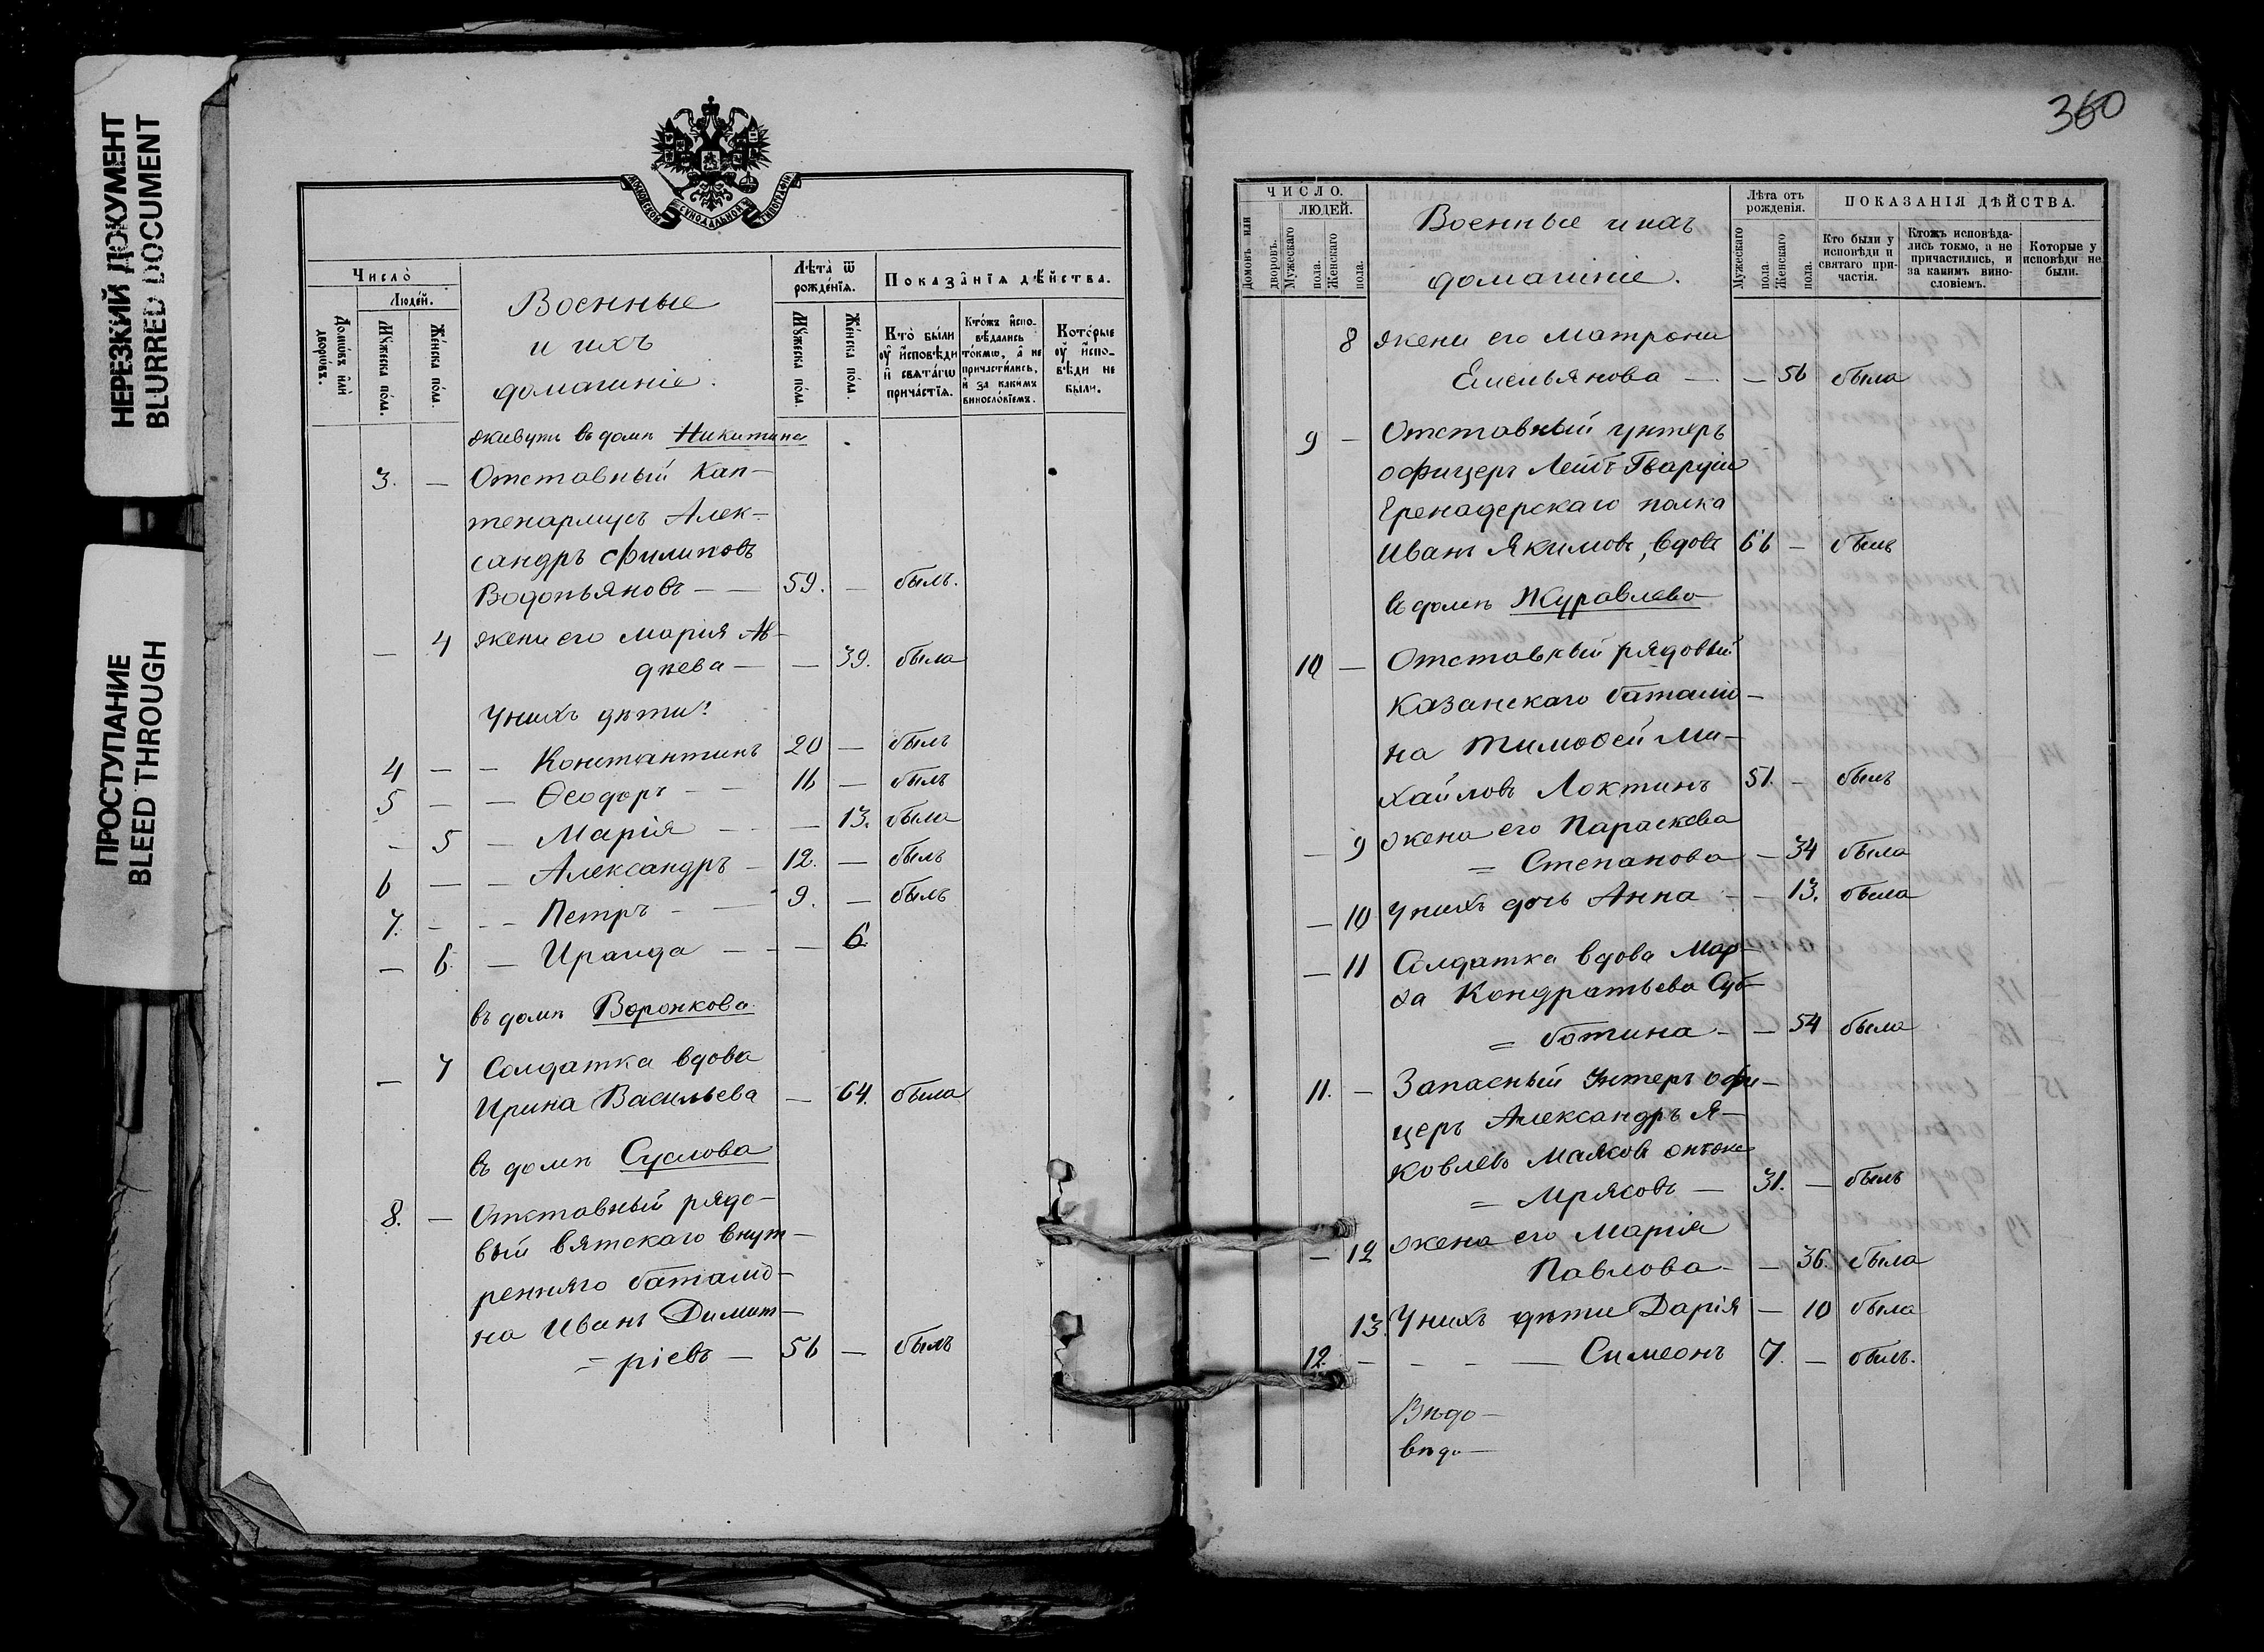 НЕРЕЗКИЙ ДОКУМЕНТ
BLURRED DOCUMENT
ПРОСТУПАНИЕ
BLEED THROUGH
МОСКОВСКОЙ СѴНОДАЛЬНОЙ ТИПОГРАФІИ
Число̀
Люде́й.
Домѡ́въ и҆лѝ дворѡ́въ.
Мꙋ́жеска по́ла.
Же́нска по́ла.
Военные
и ихъ
домашніе.
Лѣ́та ѿ рожде́нїѧ.
Мꙋ́жеска по́ла.
Же́нска по́ла.
Показа̑нїѧ дѣ́йства.
Кто̀ бы́ли
ᲂу҆ и҆сповѣди
и҆ свѧта́гѡ
прича́стїѧ.
Кто́жъ и҆спо-
вѣ́дались
то́кмѡ, а҆ не
причасти́лись,
и҆ за каки́мъ
винослові́емъ.
Кото́рые
ᲂу҆ и҆спо-
вѣди не
бы́ли.
живутъ въ домѣ Никитина
3. — Отставный Кап-
тенармусъ Алек-
сандръ Филиповъ
Водопьяновъ — — 59. — былъ.
— 4 жена его Марія Ав-
дѣева — — 39. была
У нихъ дѣти:
4 — — Константинъ 20 — былъ
5 — — Ѳеодоръ — — 16 — былъ
— 5 — Марія — — — 13. была
6 — — Александръ — 12. — былъ
7. — — Петръ — — 9. — былъ
— 6. — Ираида — — — 6.
въ домѣ Воронкова
— 7 Солдатка вдова
Ирина Васильева — 64. была
въ домѣ Суслова
8. — Отставный рядо-
вый вятскаго внут-
ренняго баталіо-
на Иванъ Димит-
= ріевъ — 56 — былъ
360
ЧИСЛО.
ЛЮДЕЙ.
Домовъ или дворовъ.
Мужескаго пола.
Женскаго пола.
Военные и ихъ
домашніе.
Лѣта отъ
рожденія.
Мужескаго пола.
Женскаго пола.
ПОКАЗАНІЯ ДѢЙСТВА.
Кто были у
исповѣди и
святаго при-
частія.
Ктожъ исповѣда-
лись токмо, а не
причастились, и
за какимъ вино-
словіемъ.
Которые у
исповѣди не
были.
8 жена его Матрона
Емельянова — — 56 была
9 — Отставный унтеръ
офицеръ Лейбъ Гвардіи
Гренадерскаго полка
Иванъ Якимовъ, вдовъ 66 — былъ
въ домѣ Журавлева
10 — Отставный рядовый
Казанскаго баталіо-
на Тимоѳей Ми-
хайловъ Локтинъ 51. — былъ
— 9 жена его Параскева
= Степанова — 34 была
— 10 У нихъ дочь Анна — — 13. была
— 11 Солдатка вдова Мар-
ѳа Кондратьева Суб-
= ботина — — 54 была
11. — Запасный Унтеръ офи-
церъ Александръ Я-
ковлевъ Маясовъ онъже
= Мрясовъ — 31. — былъ
— 12 жена его Марія
Павлова — — 36. была
13. У нихъ дѣти Дарія — 10 была
12. — — — — Симеонъ 7. — былъ.
Вѣдо-
вѣдо-